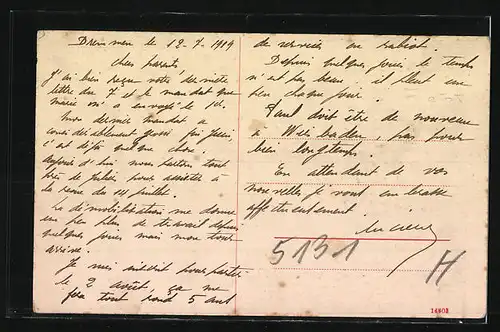 le 12-7-1919
chers parents
J'ai bien reçu votre dernière
lettre du 7 et le mandat que
m'a envoyé le 1er.
mon dernier mandat a
considérablement grossi
c'est déjà quelque chose
Aujourd'hui nous partons tout
près de pour assister à
la revue du 14 juillet.
La démobilisation me donne
un peu plus de travail depuis
quelques jours mais mon tour
arrive.
Je suis inscrit pour partir
le 2 août, ça me
fera tout rond 5 ans
de service en rabiot.
Depuis quelques jours le temps
n'est pas beau il pleut un
peu chaque jour.
Paul doit être de nouveau
à Wiesbaden, pas pour
bien longtemps.
En attendant de vos
nouvelles je vous embrasse
affectueusement
Lucien
5131
H
14603